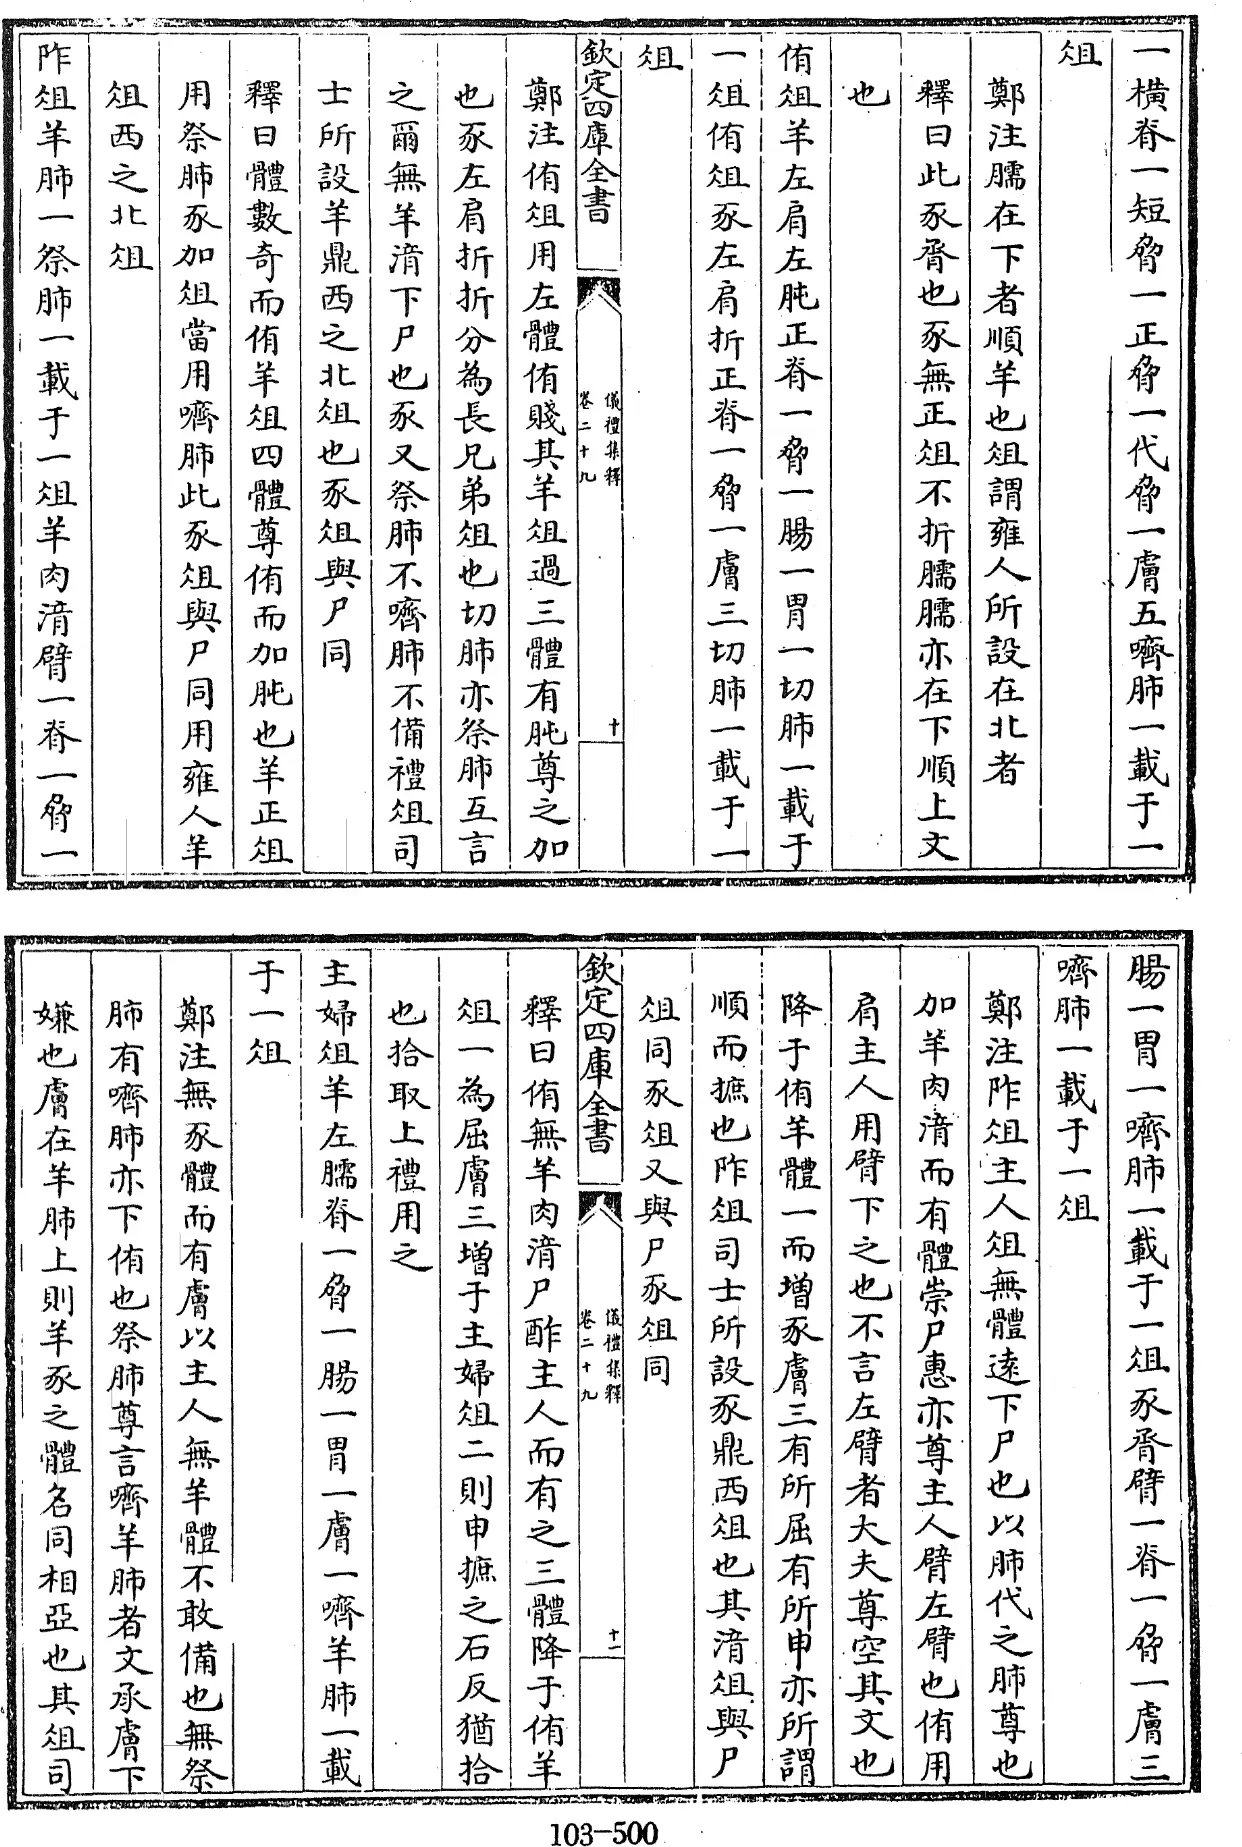 一橫脊一短脅一正脅一代脅一膚五嚌肺一載于一
俎
鄭注臑在下者順羊也俎謂雍人所設在北者
釋曰此豕脀也豕無正俎不折臑臑亦在下順上文
也
侑俎羊左肩左肫正脊一脅一腸一胃一切肺一載于
一俎侑俎豕左肩折正脊一脅一膚三切肺一載于一
俎
欽定四庫全書
儀禮集釋
卷二十九
十
鄭注侑俎用左體侑賤其羊俎過三體有肫尊之加
也豕左肩折折分為長兄弟俎也切肺亦祭肺互言
之爾無羊湆下尸也豕又祭肺不嚌肺不備禮俎司
士所設羊鼎西之北俎也豕俎與尸同
釋曰體數奇而侑羊俎四體尊侑而加肫也羊正俎
用祭肺豕加俎當用嚌肺此豕俎與尸同用雍人羊
俎西之北俎
阼俎羊肺一祭肺一載于一俎羊肉湆臂一脊一脅一
腸一胃一嚌肺一載于一俎豕脀臂一脊一脅一膚三
嚌肺一載于一俎
鄭注阼俎主人俎無體遠下尸也以肺代之肺尊也
加羊肉湆而有體崇尸惠亦尊主人臂左臂也侑用
肩主人用臂下之也不言左臂者大夫尊空其文也
降于侑羊體一而增豕膚三有所屈有所申亦所謂
順而摭也阼俎司士所設豕鼎西俎也其湆俎與尸
俎同豕俎又與尸豕俎同
欽定四庫全書
儀禮集釋
卷二十九
十一
釋曰侑無羊肉湆尸酢主人而有之三體降于侑羊
俎一為屈膚三增于主婦俎二則申摭之石反猶拾
也拾取上禮用之
主婦俎羊左臑脊一脅一腸一胃一膚一嚌羊肺一載
于一俎
鄭注無豕體而有膚以主人無羊體不敢備也無祭
肺有嚌肺亦下侑也祭肺尊言嚌羊肺者文承膚下
嫌也膚在羊肺上則羊豕之體名同相亞也其俎司
103-500